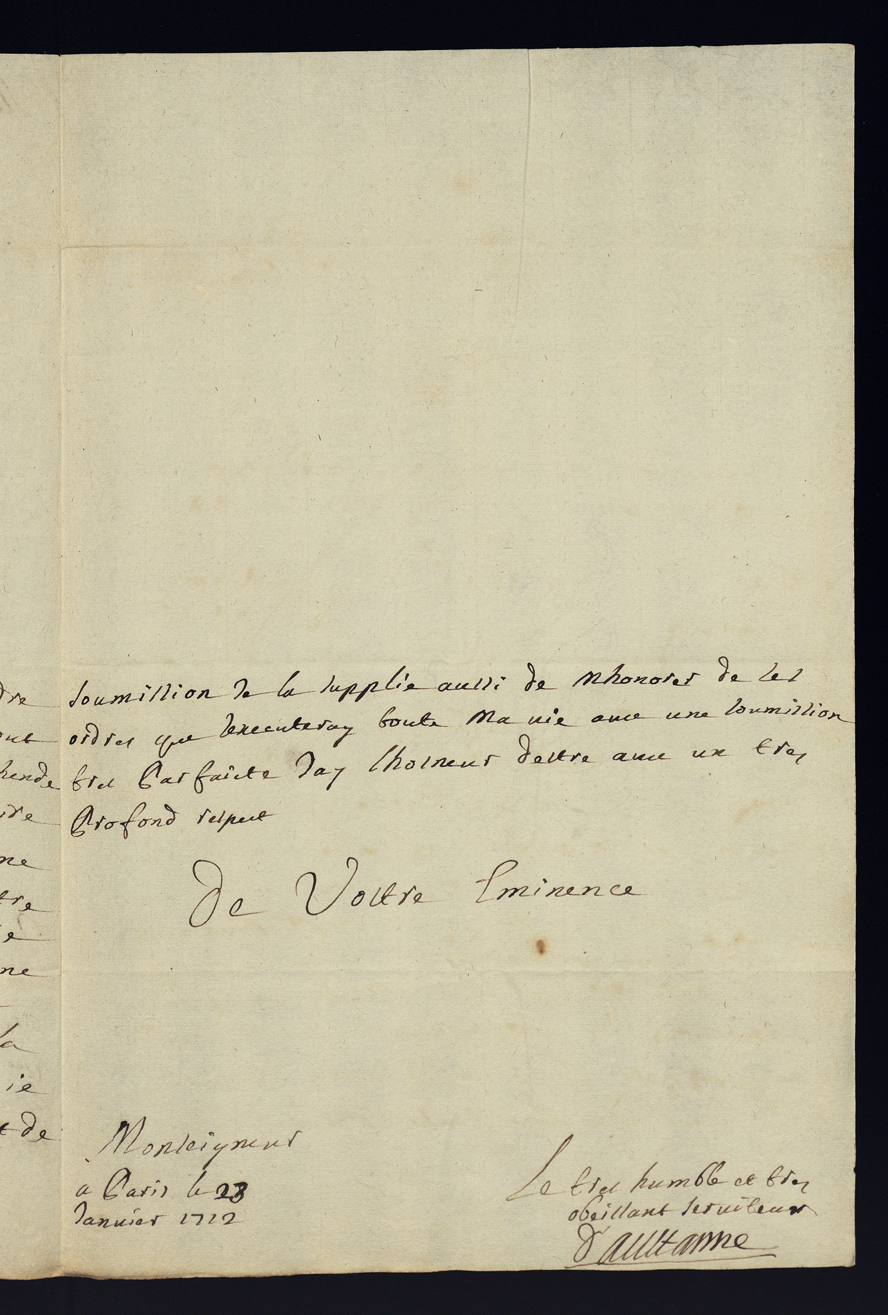 soumission Je la supplie aussi de mhonorer de ses
ordres que Jexecuteray toute ma vie avec une soumission
tres Parfaicte Jay lhonneur destre avec un tres
Profond respect
De Vostre Eminence
Monseigneur
a Paris le 23
Janvier 1712
Le tres humble et tres
obeissant serviteur
dre
hende
ne
tre
ne
la
ie
de